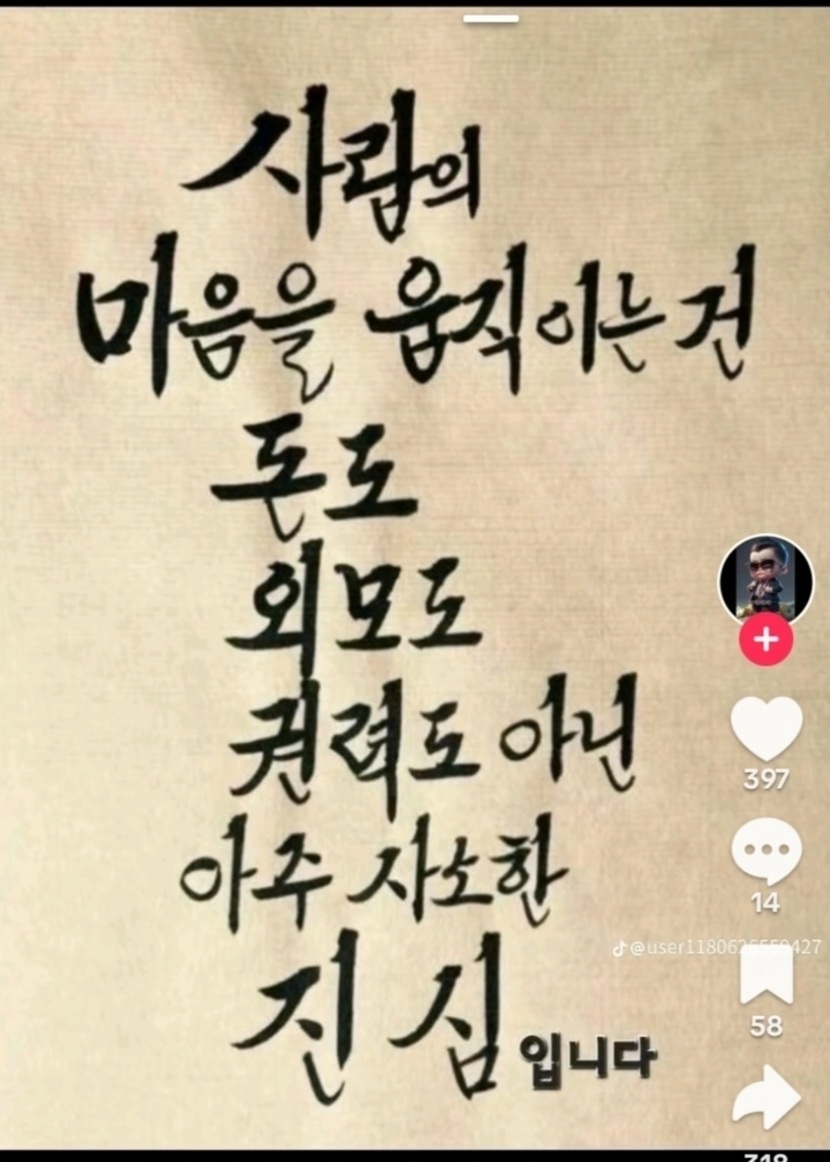 사람의
마음을 움직이는 건
돈도
외모도
권력도 아닌
아주 사소한
진심입니다
397
14
@user1180626559427
58
318